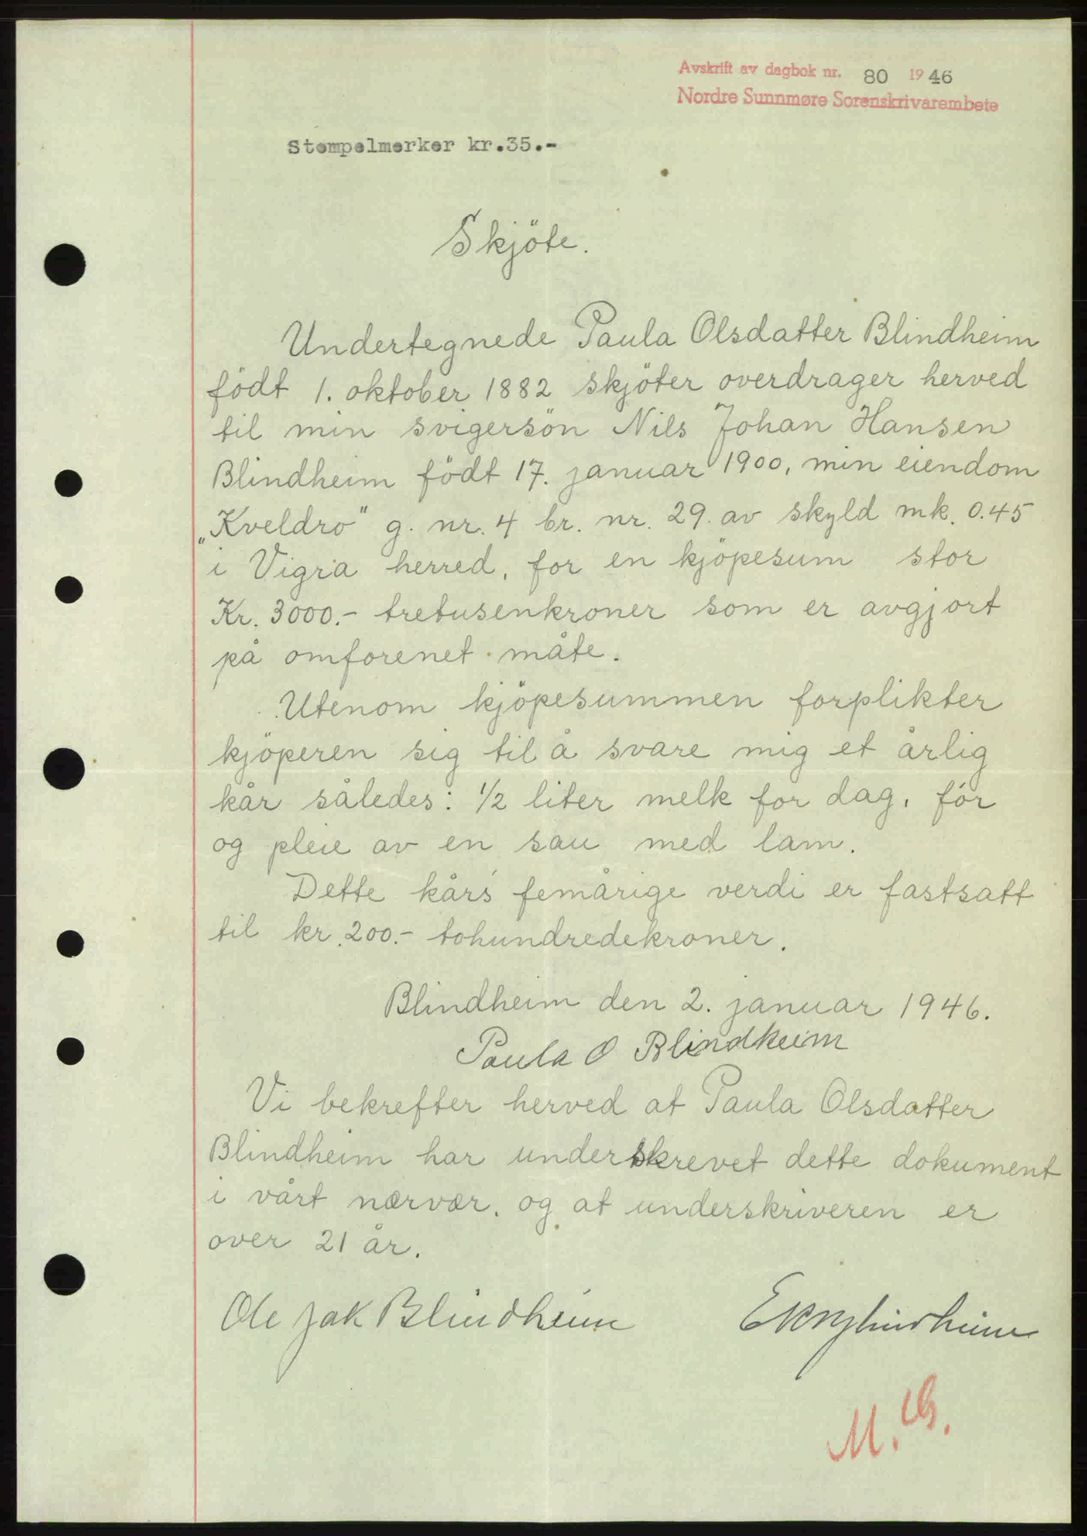 Avskrift av dagbok nr. 80 1946
Nordre Sunnmøre Sorenskrivarembete
Stempelmerker kr.35.-
Skjöte.
Undertegnede Paula Olsdatter Blindheim
födt 1. oktober 1882 skjöter overdrager herved
til min svigersön Nils Johan Hansen
Blindheim födt 17. januar 1900, min eiendom
„Kveldro" g. nr. 4 br. nr. 29. av skyld mk. 0.45
i Vigra herred, for en kjöpesum stor
Kr. 3000.- tretusenkroner som er avgjort
på omforenet måte.
Utenom kjöpesummen forplikter
kjöperen sig til å svare mig et årlig
kår således: 1/2 liter melk for dag, för
og pleie av en sau med lam.
Dette kårs femårige verdi er fastsatt
til kr. 200.- tohundredekroner.
Blindheim den 2. januar 1946.
Paula O Blindheim
Vi bekrefter herved at Paula Olsdatter
Blindheim har underskrevet dette dokument
i vårt nærvær, og at underskriveren er
over 21 år.
Ole Jak Blindheim
M. B.